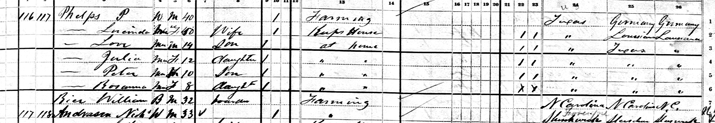 116 117 Phelps P W M 40 1 Farming Texas Germany Germany 1
— Lucinda Mu F 30 Wife 1 Keeps House 1 1 " Louisiana Louisiana 2
— Lon Mu M 14 Son 1 at home 1 1 " Texas " 3
— Julia Mu F 12 Daughter 1 " " 1 1 " " " 4
— Peter Mu M 10 Son 1 " " 1 1 " " " 5
— Rosanna Mu F 8 Daught 1 " " X X " " " 6
Rier William B M 32 boarder Farming N Carolina N Carolina N C.
117 118 Andrason Nick W M 33 1 "